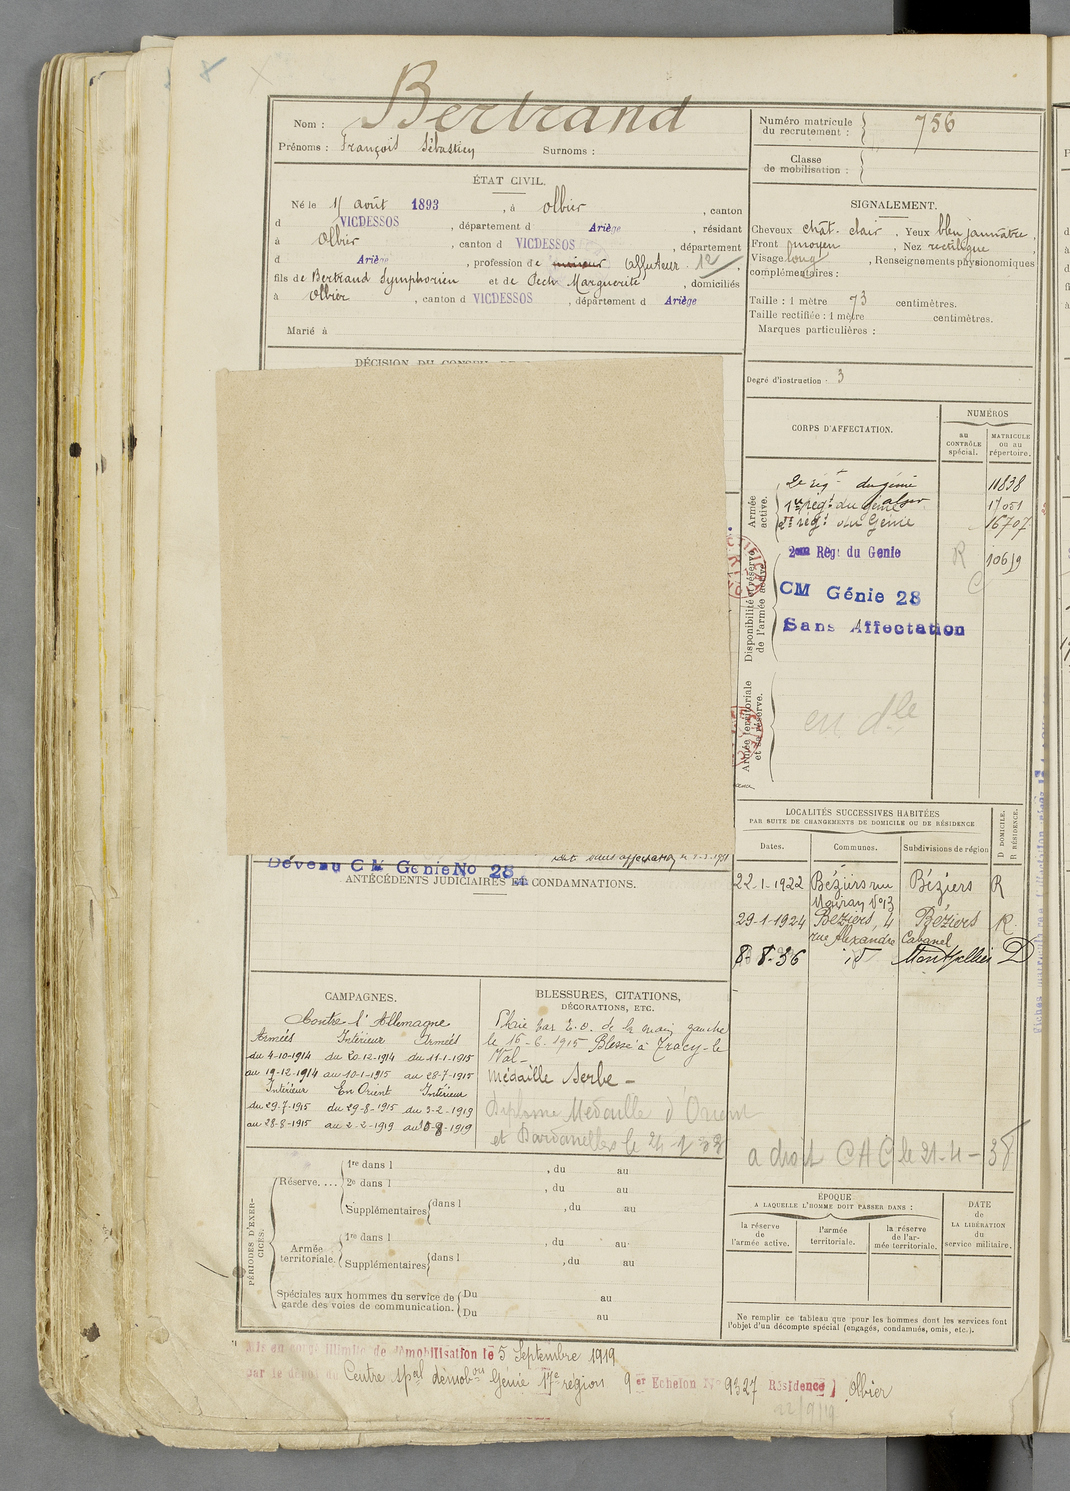 Nom : Bertrand
Prénoms : François Sébastien Surnoms :
ÉTAT CIVIL.
Né le août 1893, à Olbier, canton
d VICDESSOS, département d Ariège, résidant
à Olbier, canton d VICDESSOS, département
d Ariège, profession de mineur affuteur 12
fils de Bertrand Symphorien et de Pech Marguerite, domiciliés
à Olbier, canton d VICDESSOS, département d Ariège
Marié à
Numéro matricule du recrutement : 756
Classe de mobilisation :
SIGNALEMENT.
Cheveux chât. clair. Yeux bleu jaunâtre,
Front moyen, Nez rectiligne
Visage long, Renseignements physionomiques
complémentaires :
Taille : 1 mètre 73 centimètres.
Taille rectifiée : 1 mètre centimètres.
Marques particulières :
Degré d'instruction : 3
CORPS D'AFFECTATION.
NUMÉROS
au CONTRÔLE spécial.
MATRICULE ou au répertoire.
Armée active.
2e régt du génie 11838
1er régt du génie 17051
2e régt du Génie 16707
Disponibilité et réserve de l'armée active.
2eme Régt du Genie R 10619
C
CM Génie 28
Sans Affectation
Armée territoriale et sa réserve.
en dle
LOCALITÉS SUCCESSIVES HABITÉES
PAR SUITE DE CHANGEMENTS DE DOMICILE OU DE RÉSIDENCE
Dates. Communes. Subdivisions de région D DOMICILE. R RÉSIDENCE.
22-1-1922 Béziers rue Béziers R
29-1-1924 Béziers, 4 Béziers R
rue Alexandre Cabanel
8-8-36 id Montpellier D
a droit CAC le 21-4-38
sans affectation
Devenu CM Genie No 28
ANTÉCÉDENTS JUDICIAIRES ET CONDAMNATIONS.
CAMPAGNES.
Contre l'Allemagne
Armées Intérieur Armées
du 4-10-1914 du 20-12-1914 du 11-1-1915
au 19-12-1914 au 10-1-1915 au 28-7-1915
Intérieur En Orient Intérieur
du 29-7-1915 du 29-8-1915 du 3-2-1919
au 28-8-1915 au 2-2-1919
BLESSURES, CITATIONS,
DÉCORATIONS, ETC.
Plaie par E.O. de la main gauche
le 16-6-1915 Blessé à Tracy-le
Val -
Médaille Serbe -
Diplome Medaille d'Orient
et Dardanelles le
PÉRIODES D'EXERCICES.
Réserve.... 1re dans l , du au
2e dans l , du au
Supplémentaires dans l , du au
Armée territoriale. 1re dans l , du au
Supplémentaires dans l , du au
Spéciales aux hommes du service de garde des voies de communication. Du au
Du au
ÉPOQUE
A LAQUELLE L'HOMME DOIT PASSER DANS :
la réserve de l'armée active.
l'armée territoriale.
la réserve de l'armée territoriale.
DATE de LA LIBÉRATION du service militaire.
Ne remplir ce tableau que pour les hommes dont les services font
l'objet d'un décompte spécial (engagés, condamnés, omis, etc.).
Mis en congé illimité de démobilisation le 5 Septembre 1919
par le dépôt du Centre spal démobon Génie 17e région 9 er Echelon No 9327 Résidence Olbier
12/9/19